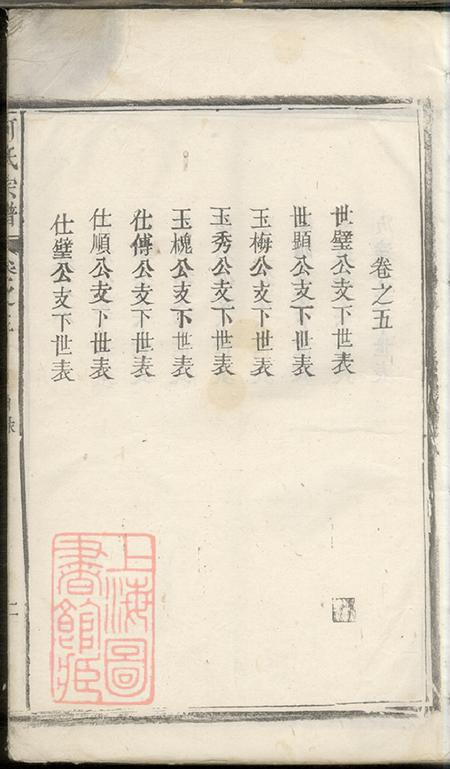 卷之五
世璧公支下世表
世顕公支下世表
玉梅公支下世表
玉秀公支下世表
玉槐公支下世表
仕傅公支下世表
仕順公支下世表
仕璧公支下世表
氏宗譜
目录
二
上海圖
書館藏